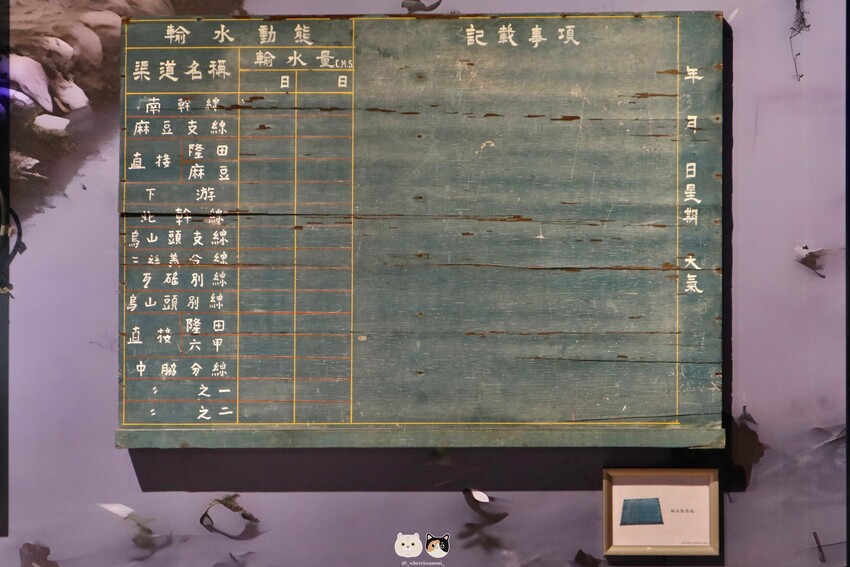 輸水動態
記載事項
渠道名稱
輸水量C.M.S
日 日
南幹線
麻豆支線
直接 隆田
麻豆
下游
北幹線
烏山頭支線
別線
烏山頭別線
直接 隆田
六甲
中脇分線
〃 之一
〃 之二
年 月 日星期 天氣